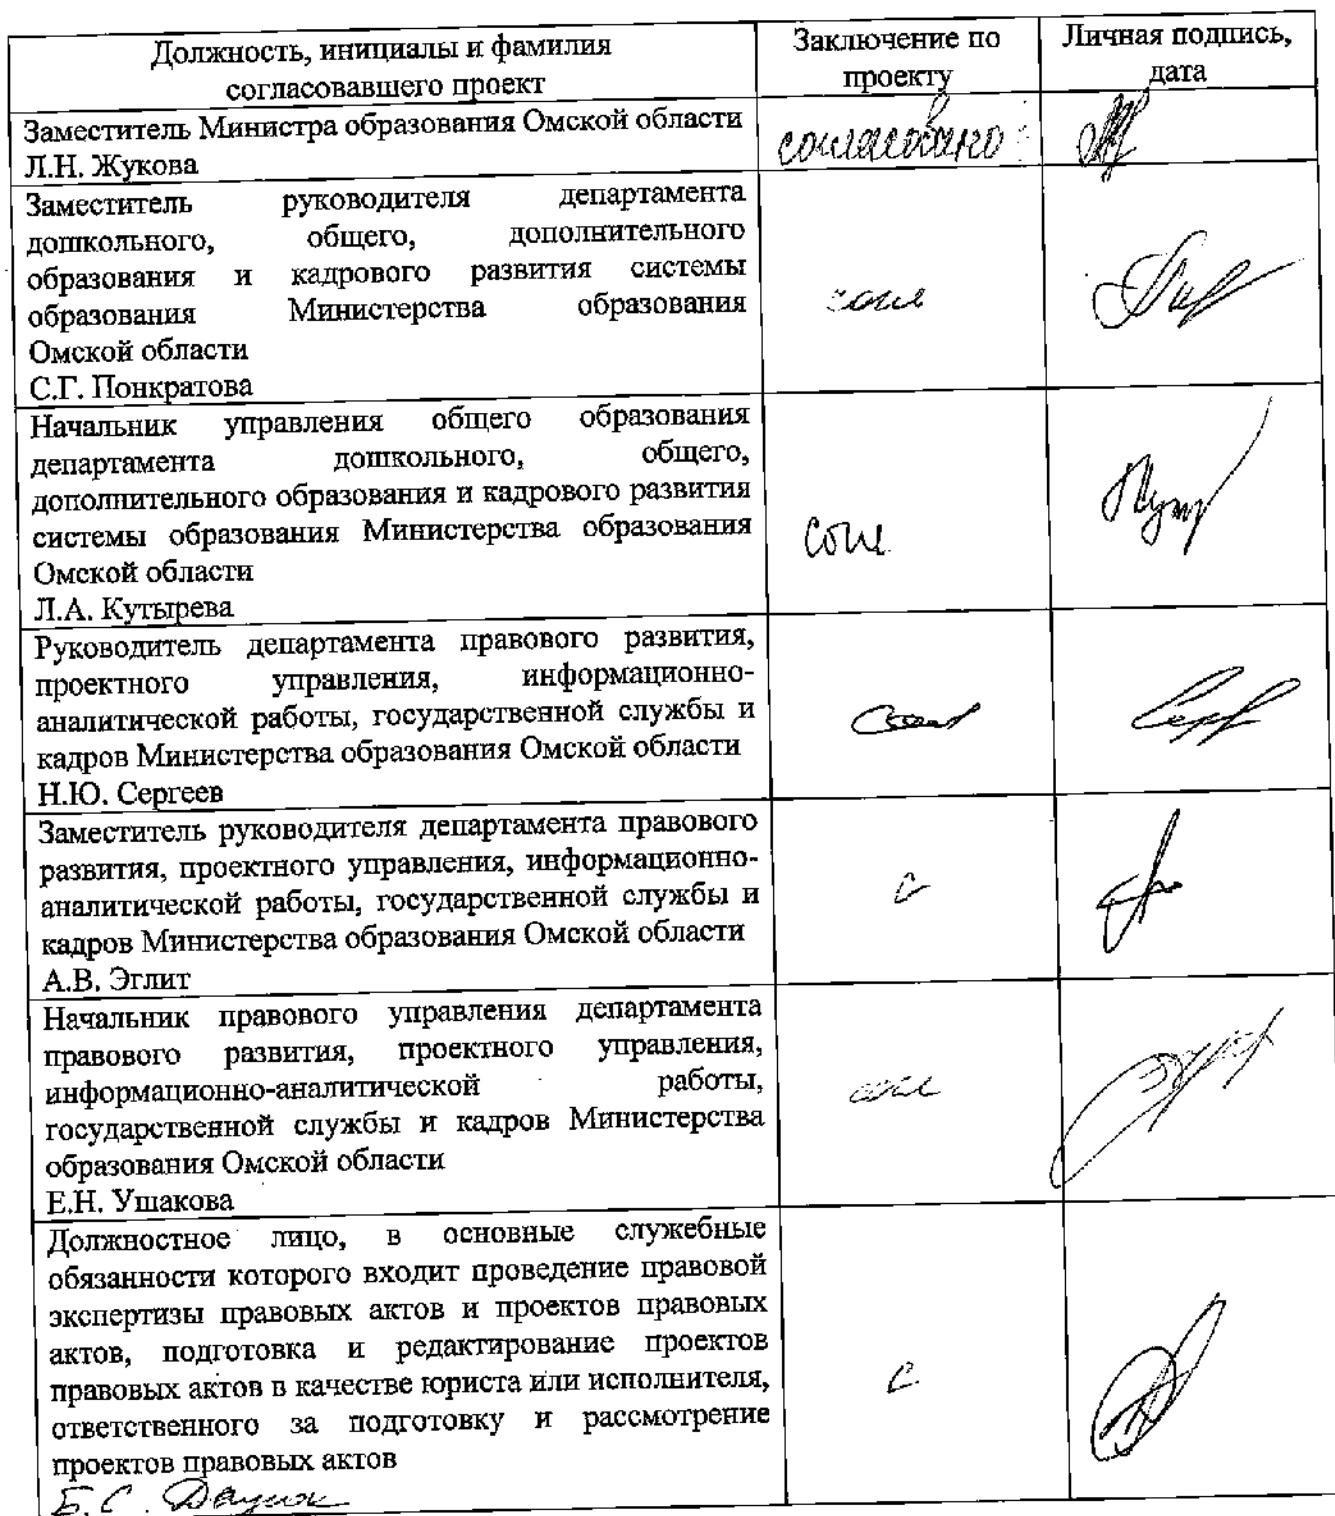 Должность, инициалы и фамилия
согласовавшего проект
Заключение по
проекту
Личная подпись,
дата
Заместитель Министра образования Омской области
Л.Н. Жукова
согласовано
Заместитель руководителя департамента
дошкольного, общего, дополнительного
образования и кадрового развития системы
образования Министерства образования
Омской области
С.Г. Понкратова
согл
Начальник управления общего образования
департамента дошкольного, общего,
дополнительного образования и кадрового развития
системы образования Министерства образования
Омской области
Л.А. Кутырева
согл
Руководитель департамента правового развития,
проектного управления, информационно-
аналитической работы, государственной службы и
кадров Министерства образования Омской области
Н.Ю. Сергеев
Заместитель руководителя департамента правового
развития, проектного управления, информационно-
аналитической работы, государственной службы и
кадров Министерства образования Омской области
А.В. Эглит
с
Начальник правового управления департамента
правового развития, проектного управления,
информационно-аналитической работы,
государственной службы и кадров Министерства
образования Омской области
Е.Н. Ушакова
согл
Должностное лицо, в основные служебные
обязанности которого входит проведение правовой
экспертизы правовых актов и проектов правовых
актов, подготовка и редактирование проектов
правовых актов в качестве юриста или исполнителя,
ответственного за подготовку и рассмотрение
проектов правовых актов
с
Б.С.